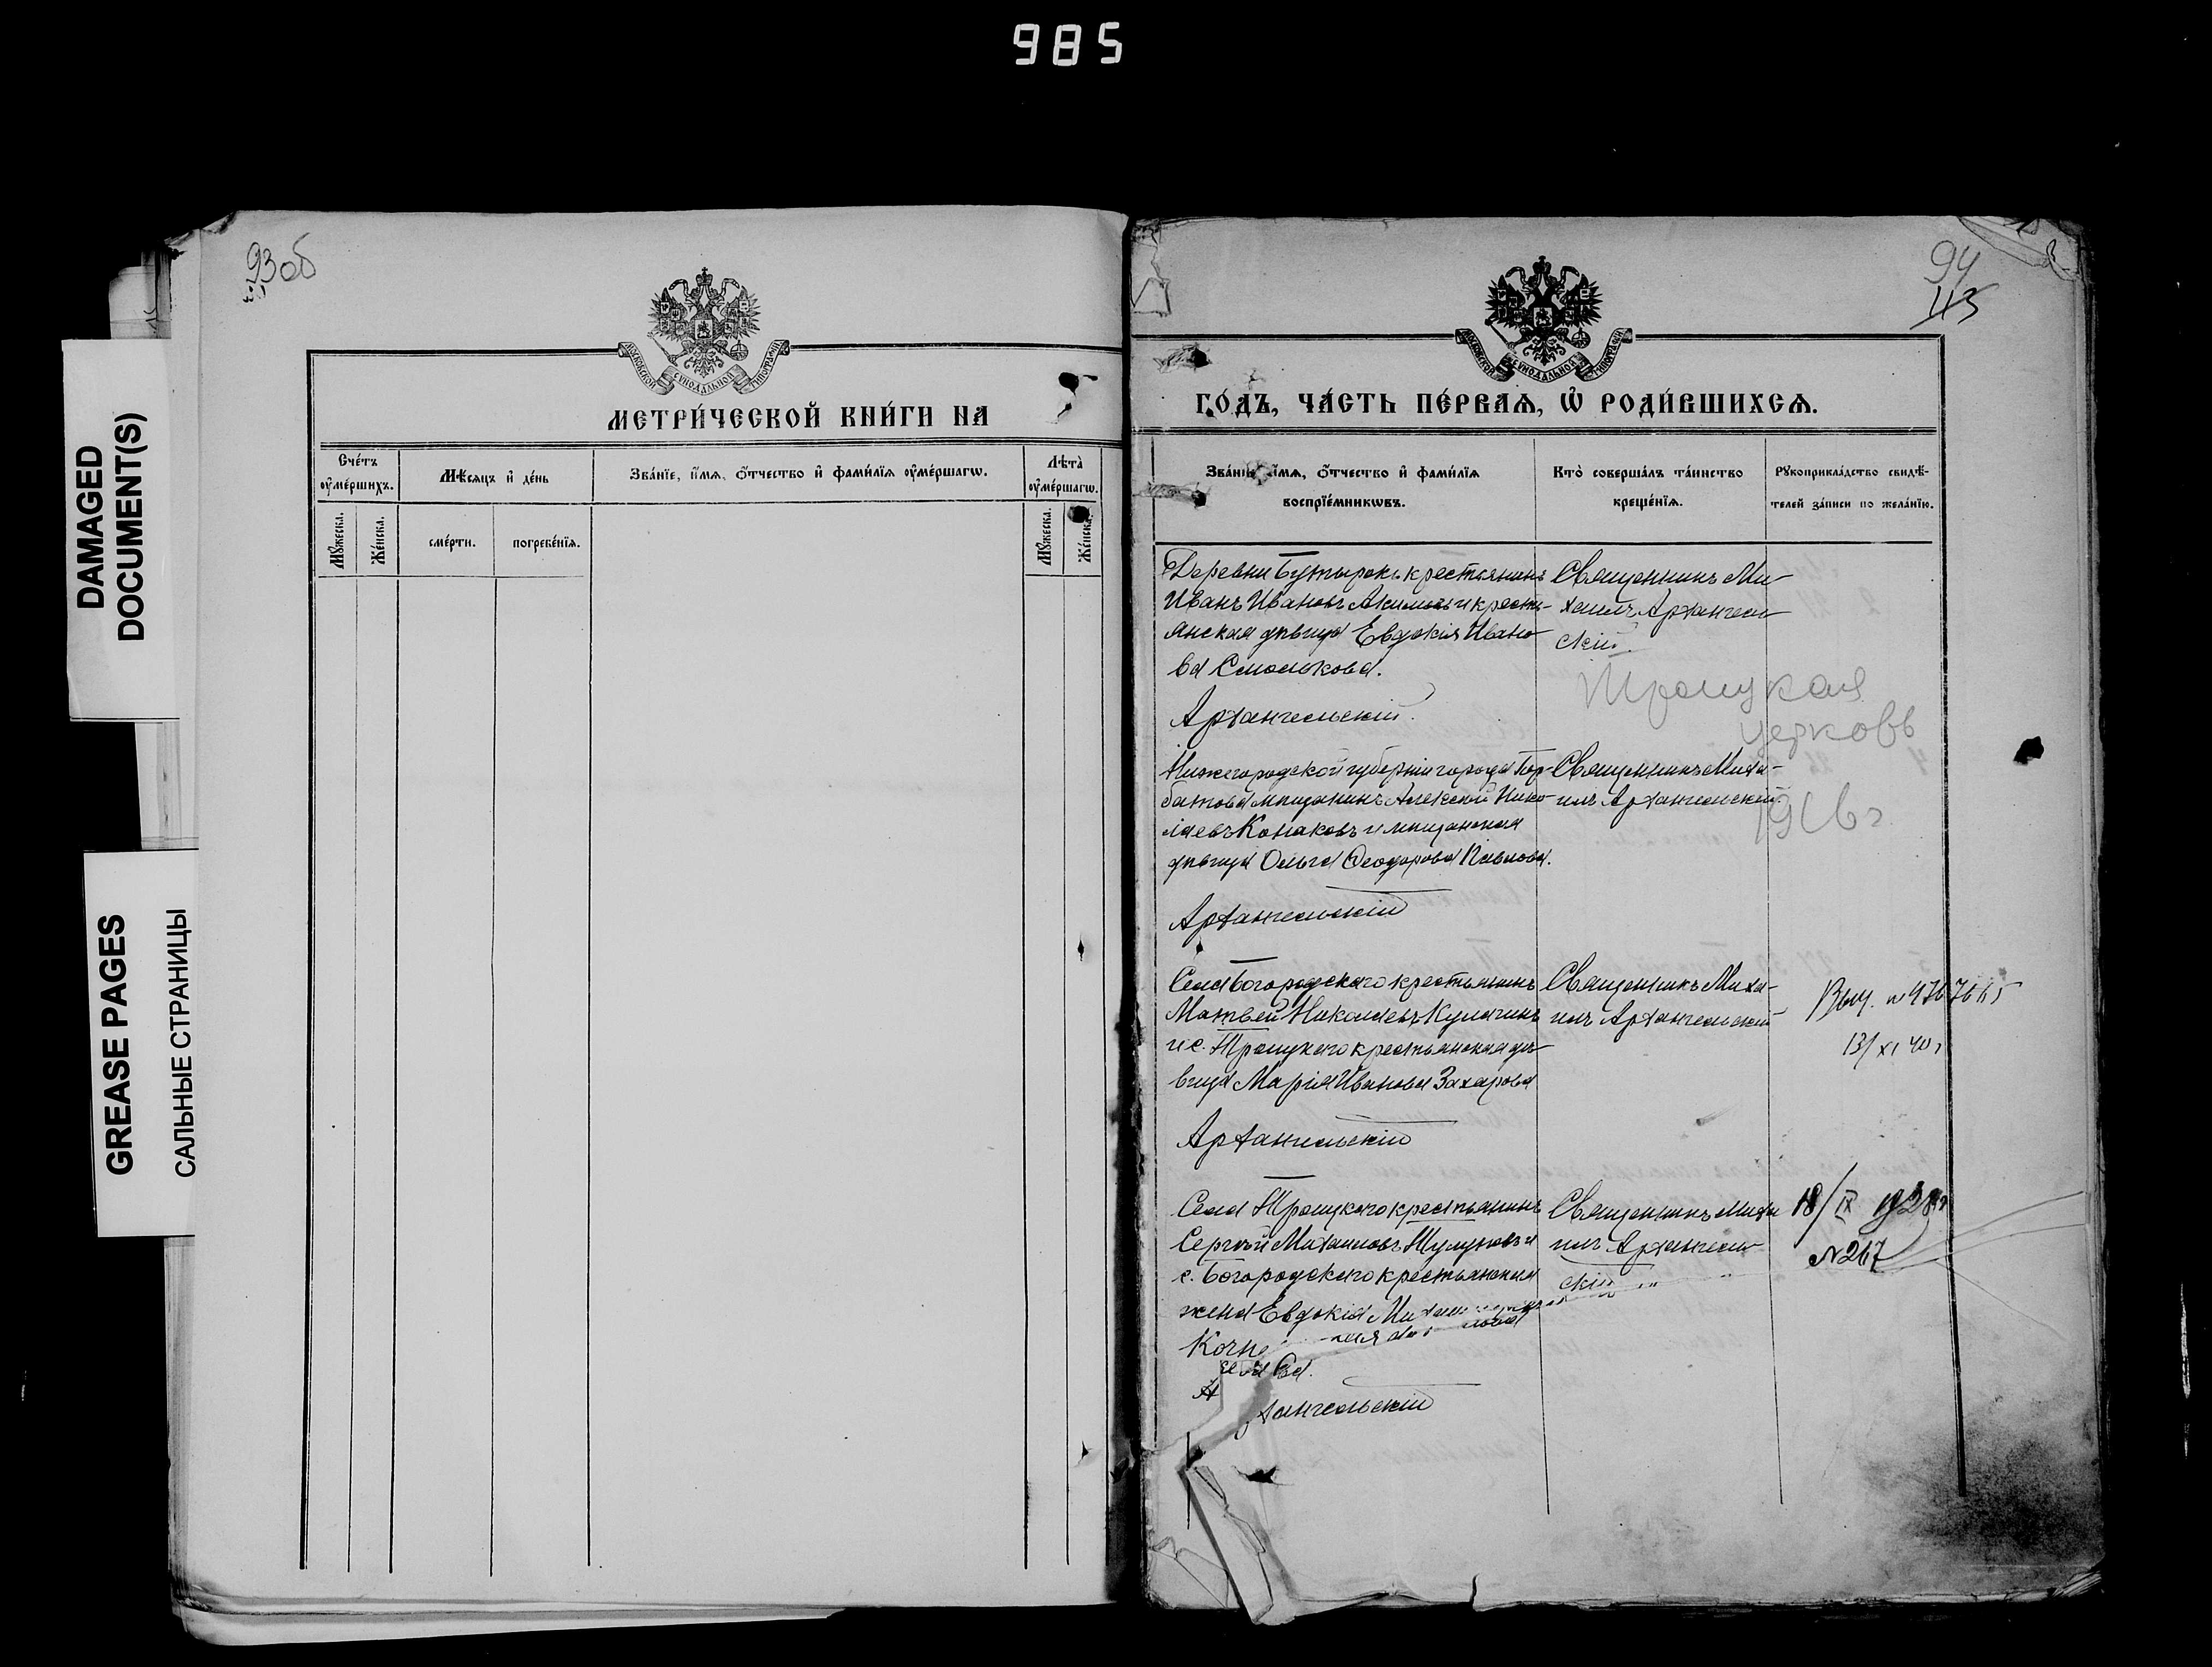 985
DAMAGED
DOCUMENT(S)
GREASE PAGES
САЛЬНЫЕ СТРАНИЦЫ
93об
МОСКОВСКОЙ СѴНОДАЛЬНОЙ ТИПОГРАФІИ
МЕТРИ́ЧЕСКОЙ КНИ́ГИ НА
Сче́тъ ᲂу҆ме́ршихъ.
Мѣ́сяцъ и҆ де́нь
Зва́нїе, и҆́мя, ѻ҆́тчество и҆ фами́лїя ᲂу҆ме́ршагѡ.
Лѣ́та ᲂу҆ме́ршагѡ.
Мꙋ́жеска.
Же́нска.
сме́рти.
погребе́нїя.
Мꙋ́жеска.
Же́нска.
94
113
МОСКОВСКОЙ СѴНОДАЛЬНОЙ ТИПОГРАФІИ
ГО́ДЪ, ЧА́СТЬ ПЕ́РВАѦ, Ѡ҆ РОДИ́ВШИХСѦ.
Зва́нїе, и҆́мя, ѻ҆́тчество и҆ фами́лїя
воспрїе́мникѡвъ.
Кто̀ соверша́лъ та́инство
креще́нїя.
Рꙋкоприкла́дство свидѣ́-
телей за́писи по жела́нїю.
Деревни Бутырокъ крестьянинъ
Иванъ Ивановъ Акимовъ и кресть-
янская дѣвица Евдокія Ивано-
ва Смолькова.
Архангельскій.
Священникъ Ми-
хаилъ Архангель-
скій.
Троицкая
церковь
1916 г.
Нижегородской губерніи города Гор-
батова мѣщанинъ Алексей Нико-
лаевъ Конаковъ и мѣщанская
дѣвица Ольга Ѳеодорова Павлова.
Архангельскій
Священникъ Миха-
илъ Архангельскій.
Села Богородскаго крестьянинъ
Матвей Николаевъ Кулагинъ
и с. Троицкаго крестьянская дѣ-
вица Марія Иванова Захарова
Архангельскій
Священникъ Миха-
илъ Архангельскій
13/XI 40г
Села Троицкаго крестьянинъ
Сергѣй Михаиловъ
с. Богородскаго крестьянская
жена Евдокія
Архангельскій
Священникъ Миха
илъ Архангель-
скій
18/IX 1928г
№267